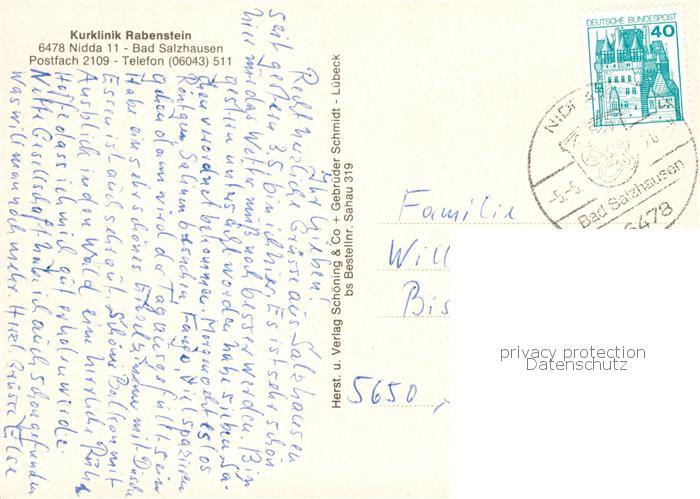 Kurklinik Rabenstein
6478 Nidda 11 - Bad Salzhausen
Postfach 2109 - Telefon (06043) 511
Ihr Lieben!
Recht herzliche Grüsse aus Salzhausen
seit gestern bin ich hier. Es ist sehr schön
hier nur das Wetter muß noch besser werden. Bin
gestern untersucht worden habe sieben Sa-
chen verordnet bekommen. Morgen geht es los
Röntgen, Fango, viel spazieren
gehen dann wird der Tag ausgefüllt sein
Habe ein sehr schönes Einzelzimmer mit Dusche
Essen ist auch sehr gut. Schöner Balkon mit
Ausblick in den Wald eine herrliche Ruhe
Hoffe dass ich mich gut erholen werde.
Nette Gesellschaft habe ich auch schon gefunden
Was will man noch mehr. Herzl Grüsse Else
Herst. u. Verlag Schöning & Co + Gebrüder Schmidt - Lübeck
bs Bestellnr. Sahau 319
DEUTSCHE BUNDESPOST
40
-5.-5.
Bad Salzhausen
6478
Familie
Will
Bis
5650
privacy protection
Datenschutz